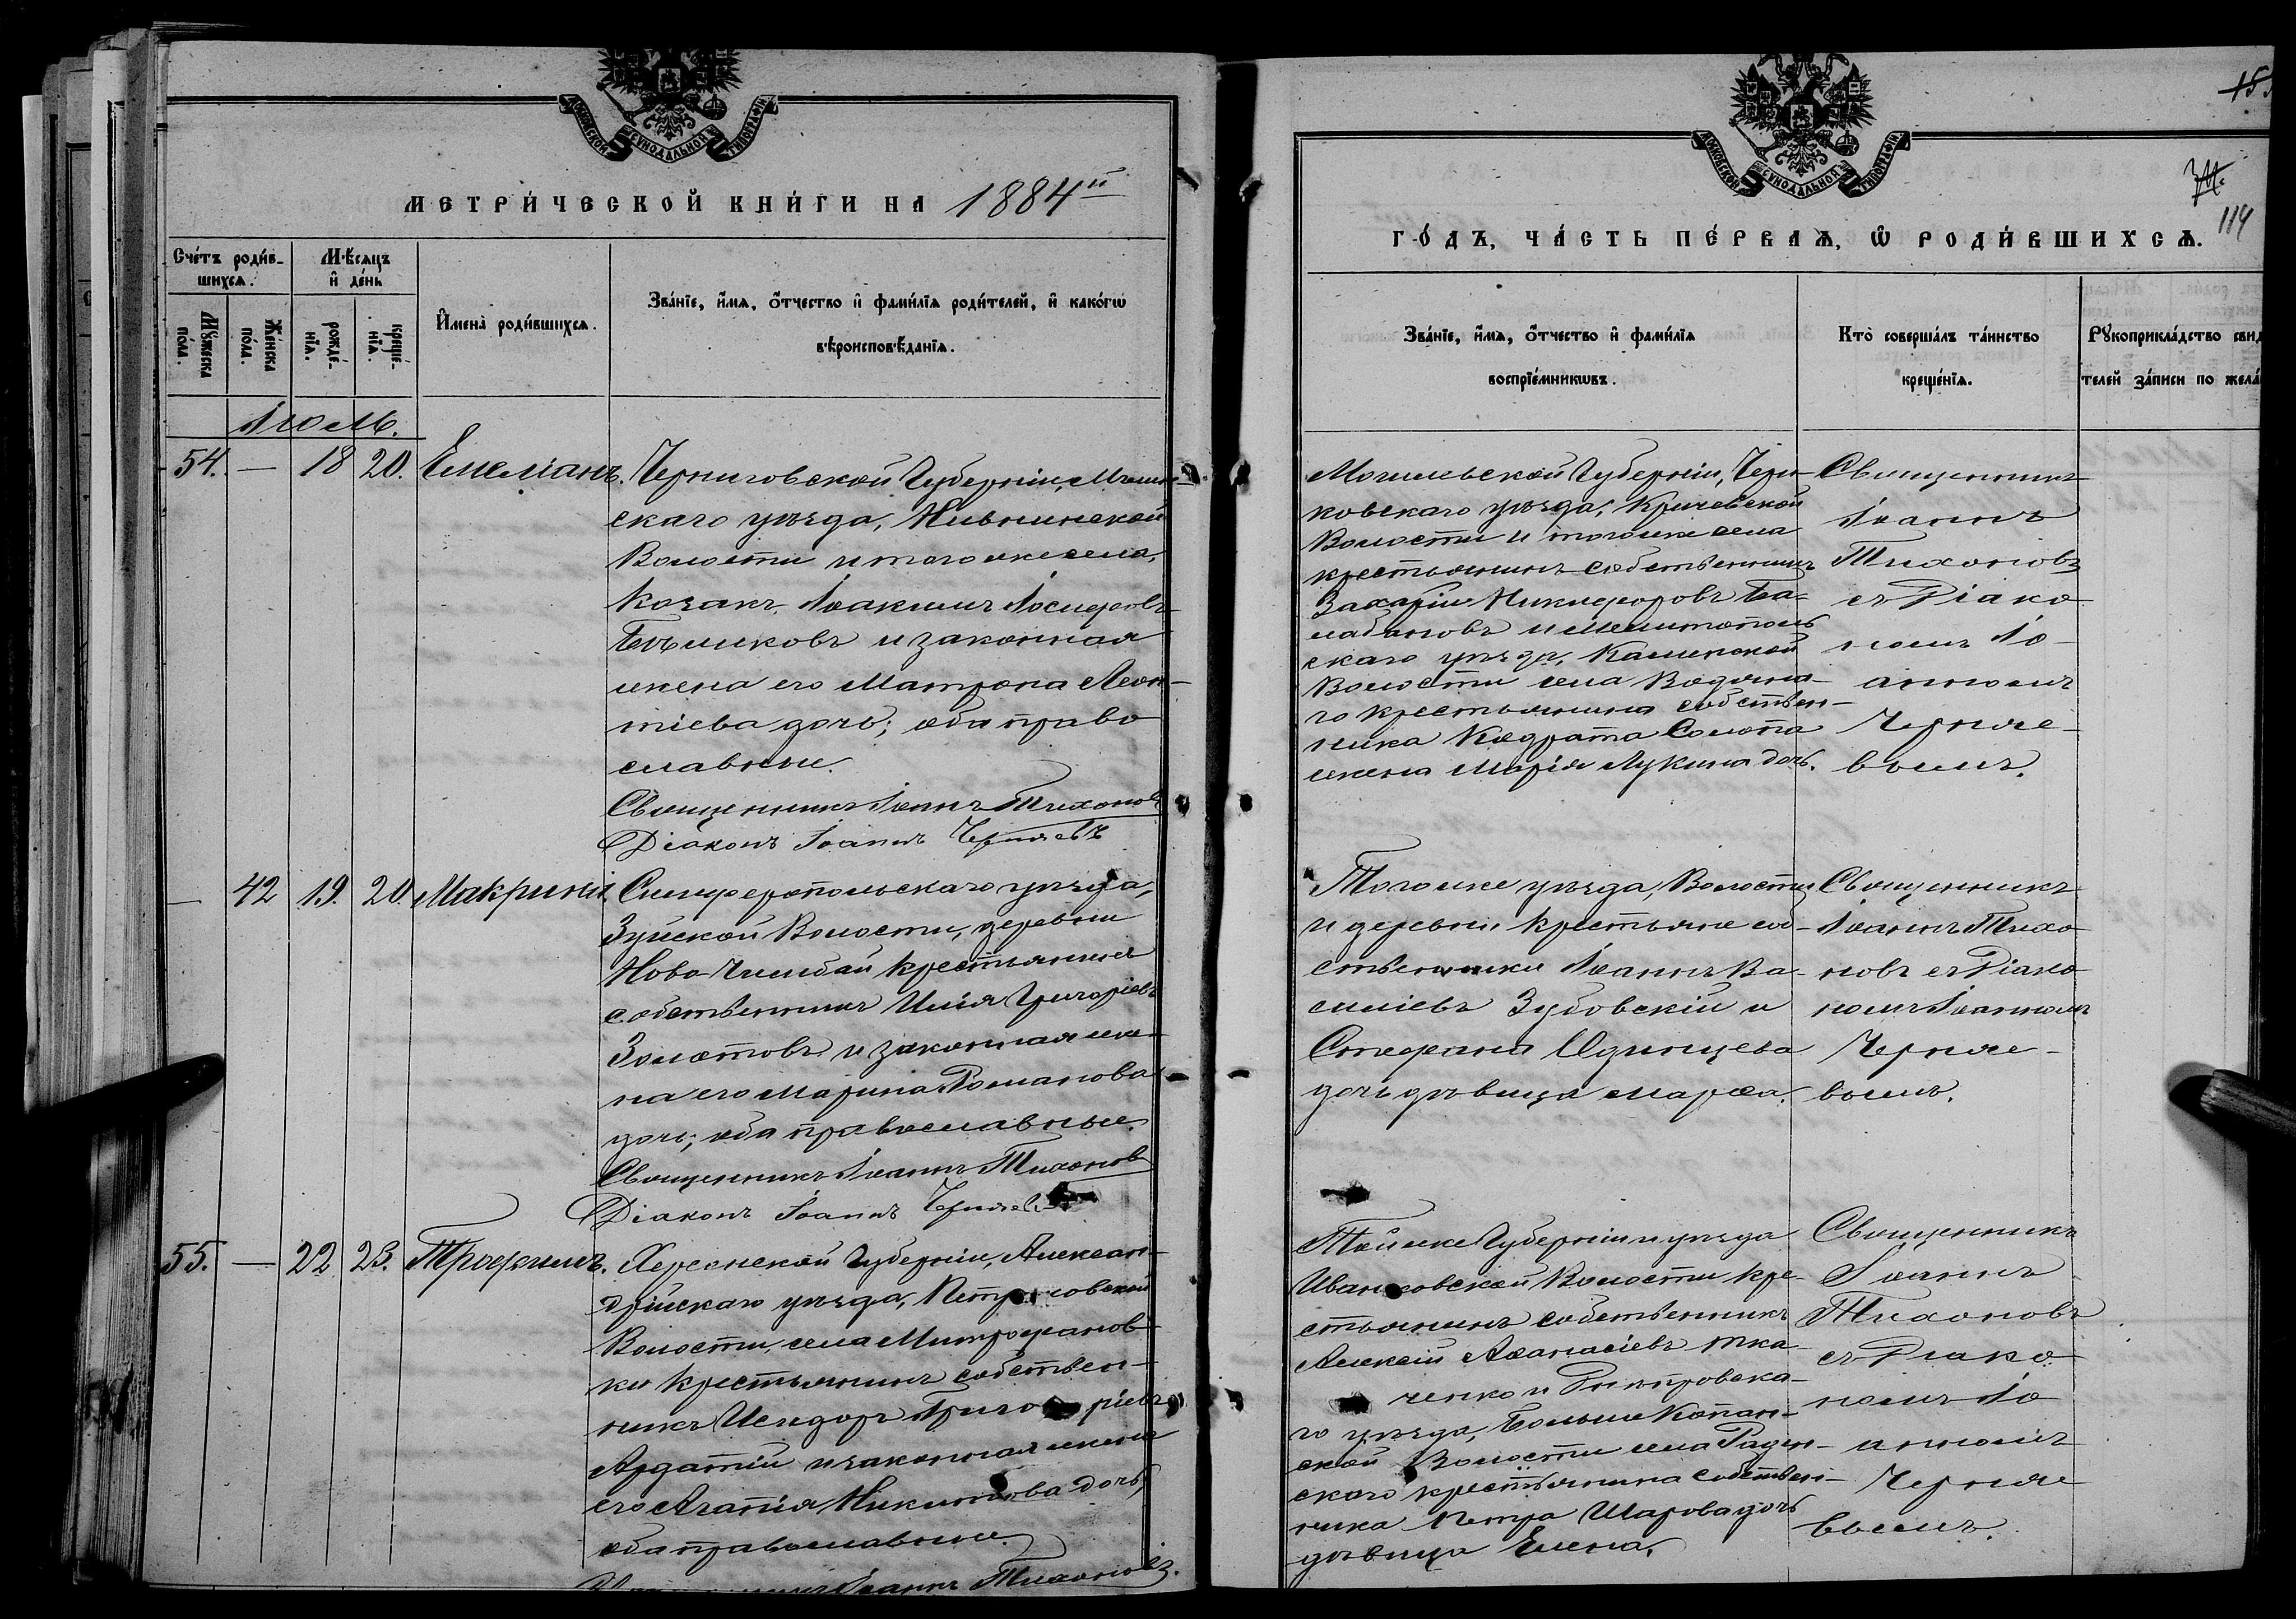 МОСКОВСКОЙ СѴНОДАЛЬНОЙ ТИПОГРАФІИ
МЕТРИ́ЧЕСКОЙ КНИ́ГИ НА 1884й
Сче́тъ роди́в-
шихся.
Мѣ́сяцъ
и҆ де́нь
Мꙋ́жеска
по́ла.
Же́нска
по́ла.
рожде́-
нїѧ.
креще́-
нїѧ.
И҆мена̀ роди́вшихсѧ.
Зва́нїе, и҆́мѧ, ѻ҆́тчество и҆ фами́лїѧ роди́телей, и҆ како́гѡ
вѣроисповѣ́данїѧ.
Іюль.
54. — 18 20. Емеліанъ.
Черниговской Губерніи, Мглин-
скаго уѣзда, Нивнинской
Волости и того же села,
Козакъ Іоакимъ Іосифовъ
Бѣликовъ и законная
жена его Матрона Леон-
тіева дочь; оба право
славные.
Священникъ Іоаннъ Тихоновъ
Діаконъ Іоаннъ Черняевъ
— 42 19. 20. Макрина.
Симферопольскаго уѣзда,
Зуйской Волости, деревни
Ново Чембай крестьянинъ
собственникъ Илія Григоріевъ
Золотовъ и законная же-
на его Марина Романова
дочь; оба православные.
Священникъ Іоаннъ Тихоновъ
Діаконъ Іоаннъ Черняевъ
55. — 22 23. Трофимъ.
Херсонской Губерніи, Алексан-
дрійскаго уѣзда,
Волости, села Митрофанов-
ки крестьянинъ собствен-
никъ Исидоръ Григоріевъ
и законная жена
его Агапія Никитова дочь,
оба православные.
Священникъ Іоаннъ Тихоновъ.
МОСКОВСКОЙ СѴНОДАЛЬНОЙ ТИПОГРАФІИ
114
ГО́ДЪ, ЧА́СТЬ ПЕ́РВАѦ, Ѡ҆ РОДИ́ВШИХСѦ.
Зва́нїе, и҆́мѧ, ѻ҆́тчество и҆ фами́лїѧ
воспрїе́мникѡвъ.
Кто̀ соверша́лъ та́инство
креще́нїѧ.
Рꙋкоприкла́дство свид
телей за́писи по жела́
Могилевской Губерніи, Чери-
ковскаго уѣзда, Кричевской
Волости и того же села
крестьянинъ собственникъ
Захарій Никифоровъ Ба-
лабановъ и Мелитополь
скаго уѣзда, Каменской
Волости села Водяна-
го крестьянина собствен-
ника Кодрата Солопа
жена Марія Лукина дочь.
Священникъ
Іоаннъ
Тихоновъ
съ Діако
номъ Іо-
анномъ
Черняе-
вымъ.
Того же уѣзда, Волости
и деревни крестьяне соб-
ственники Іоаннъ Ва-
силіевъ Зубовскій и
Стефана Одинцева
дочь дѣвица Марѳа.
Священникъ
Іоаннъ Тихо
новъ съ Діако-
номъ Іоанномъ
Черняе-
вымъ.
Той же Губерніи и уѣзда
Ивановской Волости кре-
стьянинъ собственникъ
Алексій Аѳанасіевъ Тка-
ченко и Днѣпровска-
го уѣзда, Больше Копан-
ской Волости села Раден-
скаго крестьянина собствен-
ника Петра Шарова дочь
дѣвица Елена.
Священникъ
Іоаннъ
Тихоновъ
съ Діако
номъ Іо
анномъ
Черняе
вымъ.